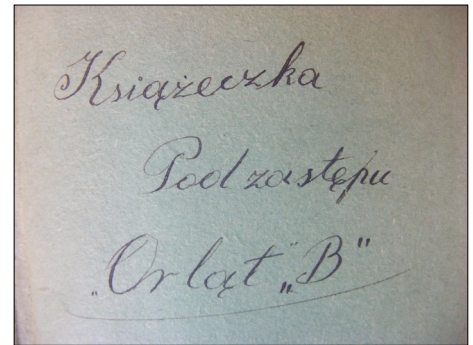 Książeczka
Podzastępu
„Orląt" „B"